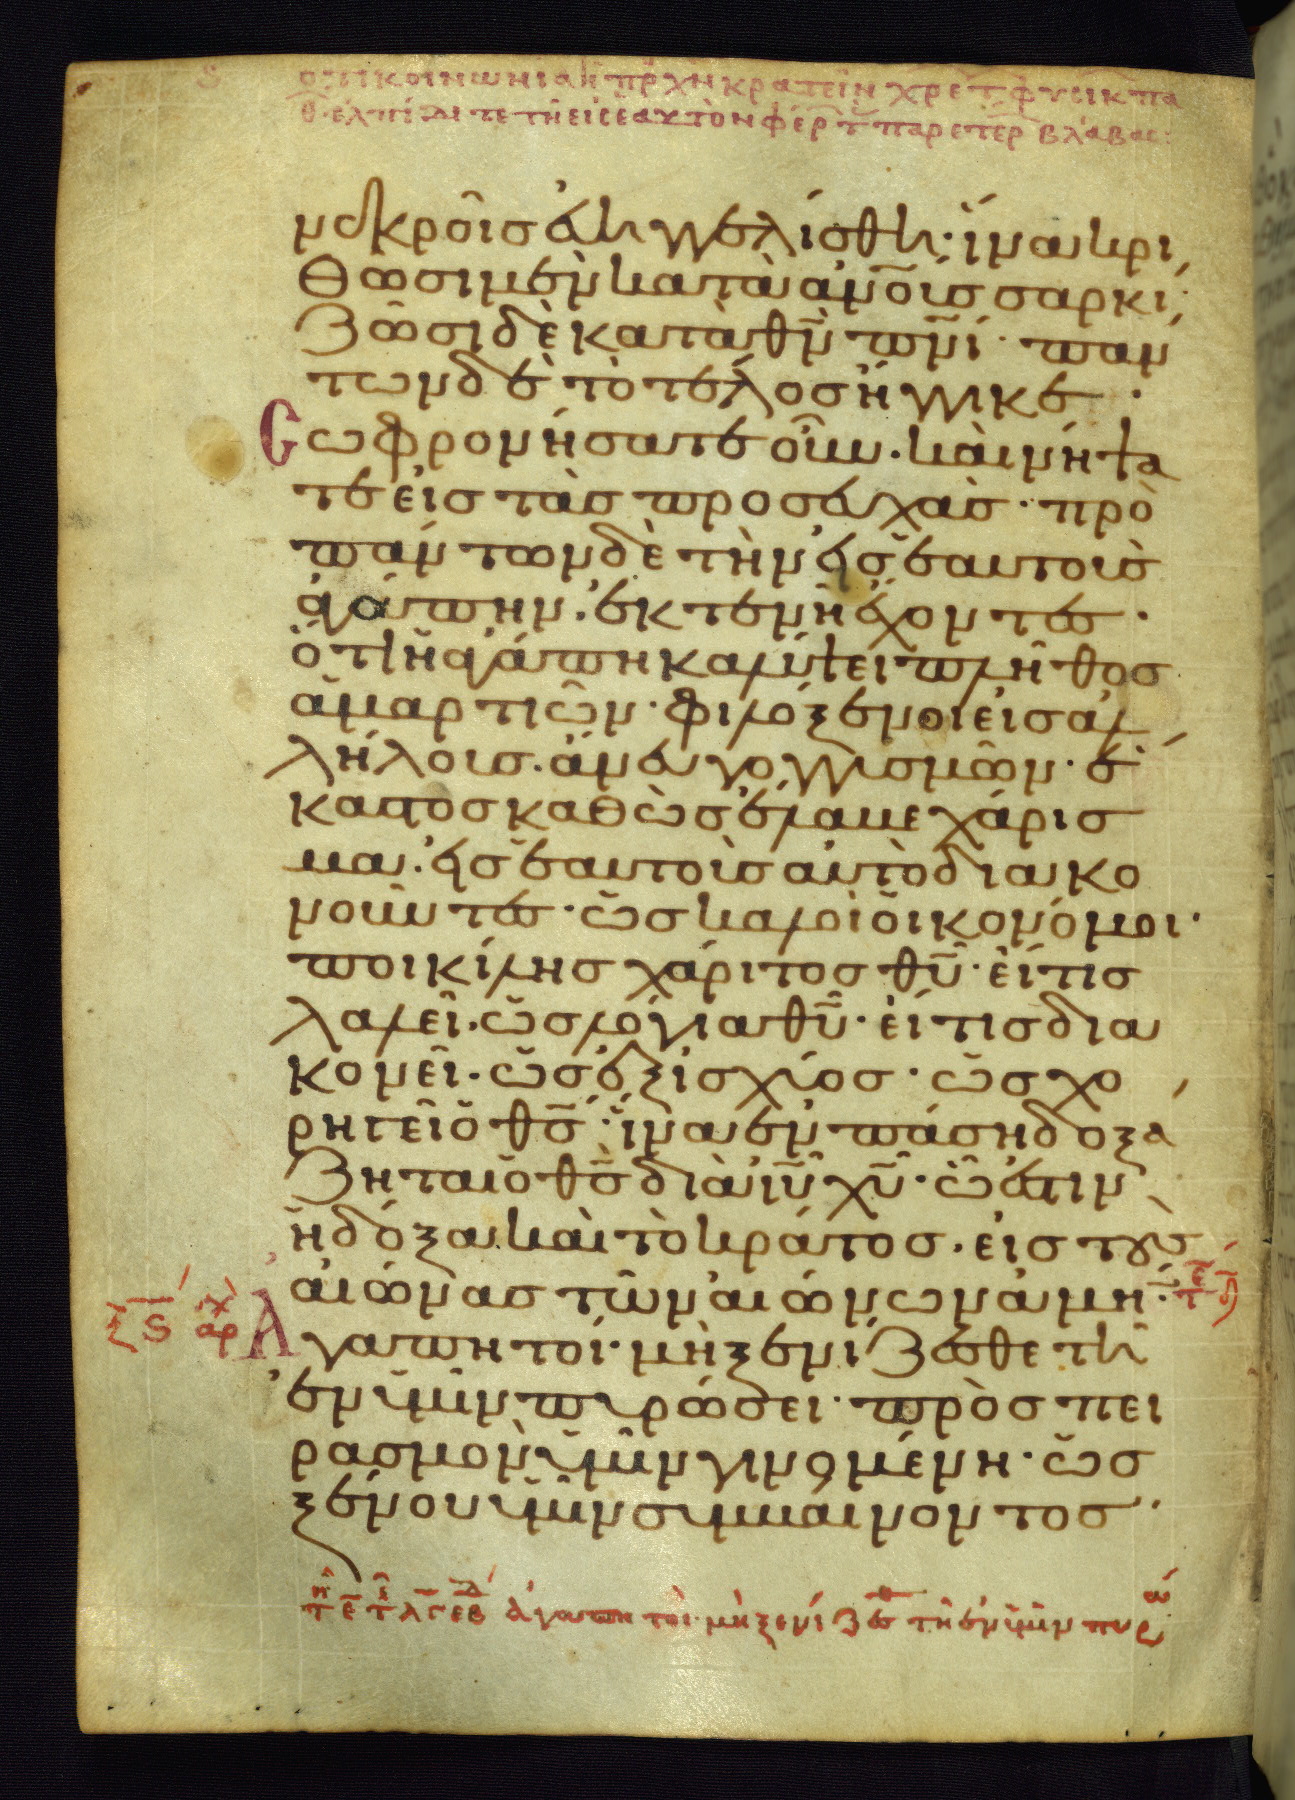 νεκροῖς εὐηγγελίσθη· ἵνα κρι
θῶσι μὲν κατὰ ἀνο̅υς σαρκί,
ζῶσι δὲ κατὰ θν̅ πνι̅· πάν
των δὲ τὸ τέλος ἤγγικε·
Σωφρονήσατε οὖν· καὶ νήψα
τε εἰς τὰς προσευχάς· πρὸ
πάντων δὲ τὴν εἰς ἑαυτοὺς
ἀγάπην· ἐκτενῆ ἔχοντες·
ὅτι ἡ ἀγάπη καλύψει πλῆθος
ἁμαρτιῶν· φιλόξενοι εἰς ἀλ
λήλους· ἄνευ γογγυσμῶν· ἕ
καστος καθὼς ἔλαβε χάρισ
μα· εἰς ἑαυτοὺς αὐτὸ διακο
νοῦντες· ὡς καλοὶ οἰκονόμοι·
ποικίλης χάριτος θυ̅· εἴ τις
λαλεῖ· ὡς λόγια θυ̅· εἴ τις δια
κονεῖ· ὡς ἐξ ἰσχύος· ὡς χο
ρηγεῖ ὁ θς̅· ἵνα ἐν πᾶσι δοξά
ζηται ὁ θς̅ διὰ ιυ̅ χυ̅· ὧ ἐστιν
ἡ δόξα καὶ τὸ κράτος· εἰς τοὺς
αἰῶνας τῶν αἰώνων ἀμήν·
Ἀγαπητοί· μὴ ξενίζεσθε τῇ
ἐν ὑμῖν πυρώσει· πρὸς πει
ρασμὸν ὑμῖν γινομένη· ὡς
ξένου ὑμῖν συμβαίνοντος·
ἀγαπητοί· μὴ ξενίζεσθ τῇ ἐν ὑμῖν πυρώ